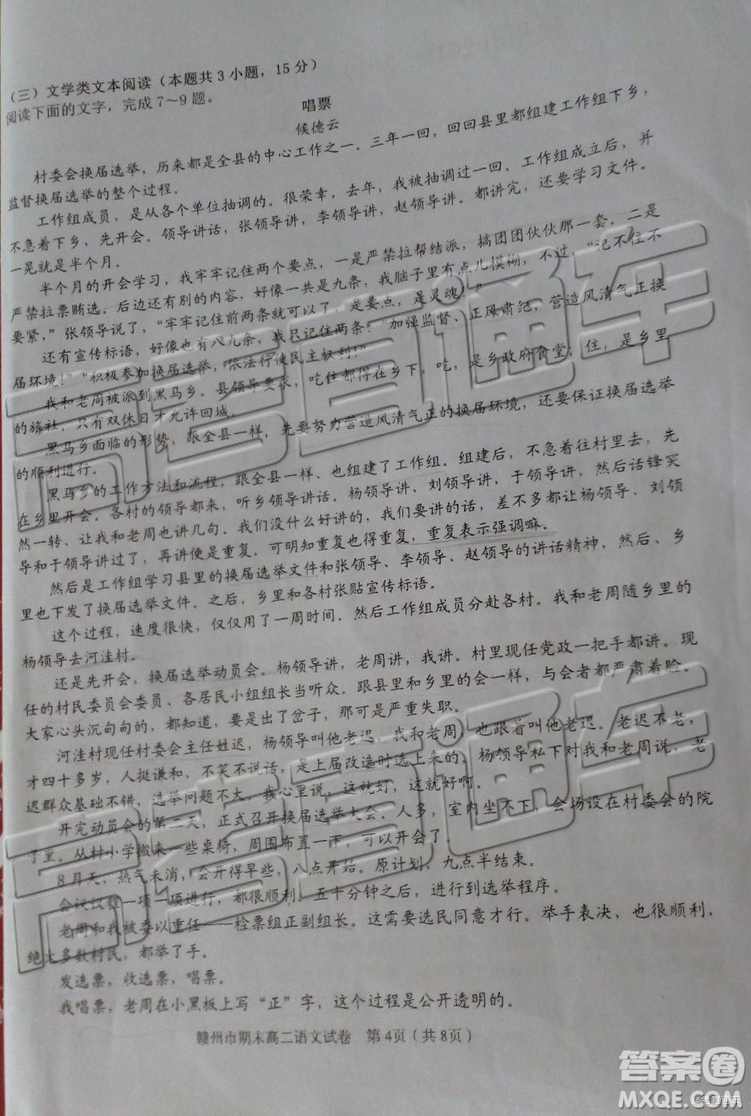 （三）文学类文本阅读（本题共3小题，15分）
阅读下面的文字，完成7～9题。
唱票
侯德云
村委会换届选举，历来都是全县的中心工作之一。三年一回，回回县里都组建工作组下乡，
监督换届选举的整个过程。
工作组成员，是从各个单位抽调的。很荣幸，去年，我被抽调过一回。工作组成立后，并
不急着下乡，先开会。领导讲话，张领导讲，李领导讲，赵领导讲。都讲完，还要学习文件。
一晃就是半个月。
半个月的开会学习，我牢牢记住两个要点，一是严禁拉帮结派，搞团团伙伙那一套。二是
严禁拉票贿选。后边还有别的内容，好像一共是九条，我脑子里有点儿模糊，不过，“记不住不
要紧，”张领导说了，“牢牢记住前两条就可以了，是要点，是灵魂。”
还有宣传标语，好像也有八九条，我只记住两条：“加强监督、正风肃纪，营造风清气正换
届环境！”“积极参加换届选举，依法行使民主权利！”
我和老周被派到黑马乡。县领导要求，吃住都得在乡下，吃，是乡政府食堂；住，是乡里
的旅社，只有双休日才允许回城。
黑马乡面临的形势，跟全县一样，先要努力营造风清气正的换届环境，还要保证换届选举
的顺利进行。
黑马乡的工作方法和流程，跟全县一样、也组建了工作组。组建后，不急着往村里去，先
在乡里开会。各村的领导都来，听乡领导讲话。杨领导讲、刘领导讲，于领导讲，然后话锋突
然一转、让我和老周也讲几句。我们没什么好讲的，我们要讲的话，差不多都让杨领导、刘领
导和于领导讲过了，再讲便是重复。可明知重复也得重复，重复表示强调嘛。
然后是工作组学习县里的换届选举文件和张领导、李领导、赵领导的讲话精神，然后、乡
里也下发了换届选举文件。之后，乡里和各村张贴宣传标语。
这个过程，速度很快，仅仅用了一周时间。然后工作组成员分赴各村。我和老周随乡里的
杨领导去河洼村。
还是先开会，换届选举动员会。杨领导讲，老周讲，我讲。村里现任党政一把手都讲。现
任的村民委员会委员、各居民小组组长当听众。跟县里和乡里的会一样，与会者都严肃着脸。
大家心头沉甸甸的，都知道，要是出了岔子，那可是严重失职。
河洼村现任村委会主任姓迟，杨领导叫他老迟。我和老周，也跟着叫他老迟。老迟不老，
才四十多岁，人挺谦和，不笑不说话，是上届改选时选上来的。杨领导私下对我和老周说，老
迟群众基础不错，选举问题不大。我心里说，这就好，这就好啊。
开完动员会的第二天，正式召开换届选举大会。人多，室内坐不下，会场设在村委会的院
子里。从村小学搬来一些桌椅，周围布置一下，可以开会了。
8月天，热气未消，会开得早些，八点开始。原计划，九点半结束。
会议议程一项一项进行，都很顺利。五十分钟之后，进行到选举程序。
老周和我被委以重任——检票组正副组长。这需要选民同意才行。举手表决，也很顺利，
绝大多数村民，都举了手。
发选票，收选票，唱票。
我唱票，老周在小黑板上写“正”字，这个过程是公开透明的。
赣州市期末高二语文试卷 第4页（共8页）
高考直通车
高考直通车
答案圈
MXQE.COM